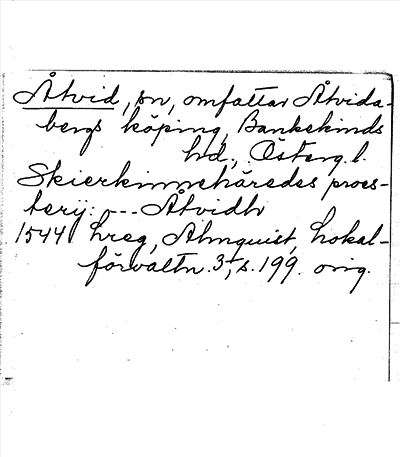 Åtvid, sn, omfattar Åtvida-
bergs köping, Bankekinds
hd., Österg. l.
Skierkinnehäredes proes-
terij: --- Åtvidh
1544 hreg, Almquist, Lokal-
förvaltn. 3, s. 199. orig.